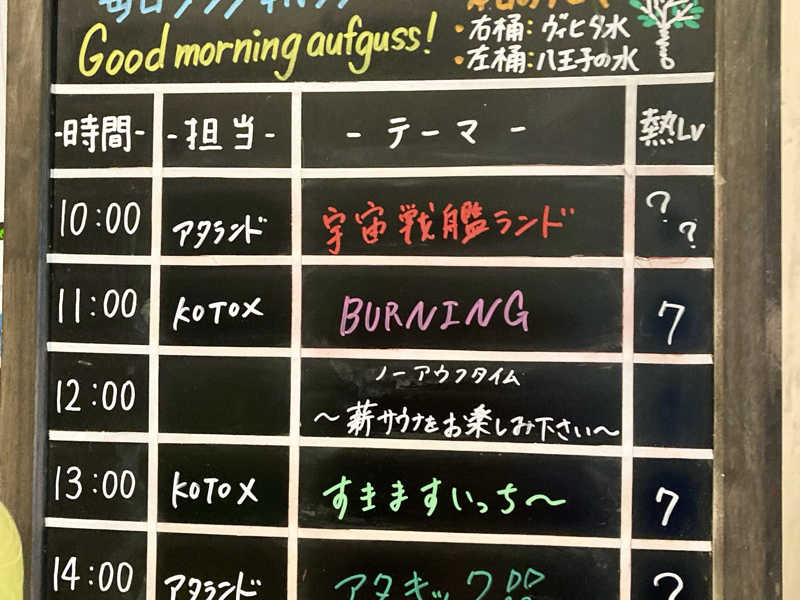 Good morning aufguss!
・右桶：ヴィヒタ水
・左桶：八王子の水
-時間- -担当- -テーマ- 熱Lv
10:00 アタランド 宇宙戦艦ランド ??
11:00 KOTOX BURNING 7
12:00 ノーアウフタイム
～薪サウナをお楽しみ下さい～
13:00 KOTOX すきますいっち～ 7
14:00 アタランド アタキック ?